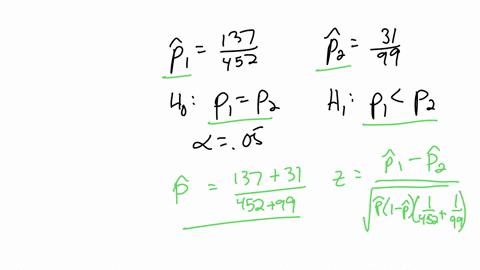 p̂₁ = 137/452 p̂₂ = 31/99
H₀: p₁ = p₂ H₁: p₁ < p₂
α = .05
p̂ = (137 + 31)/(452 + 99) z = (p̂₁ − p̂₂)/√(p̂(1−p̂)(1/452 + 1/99))